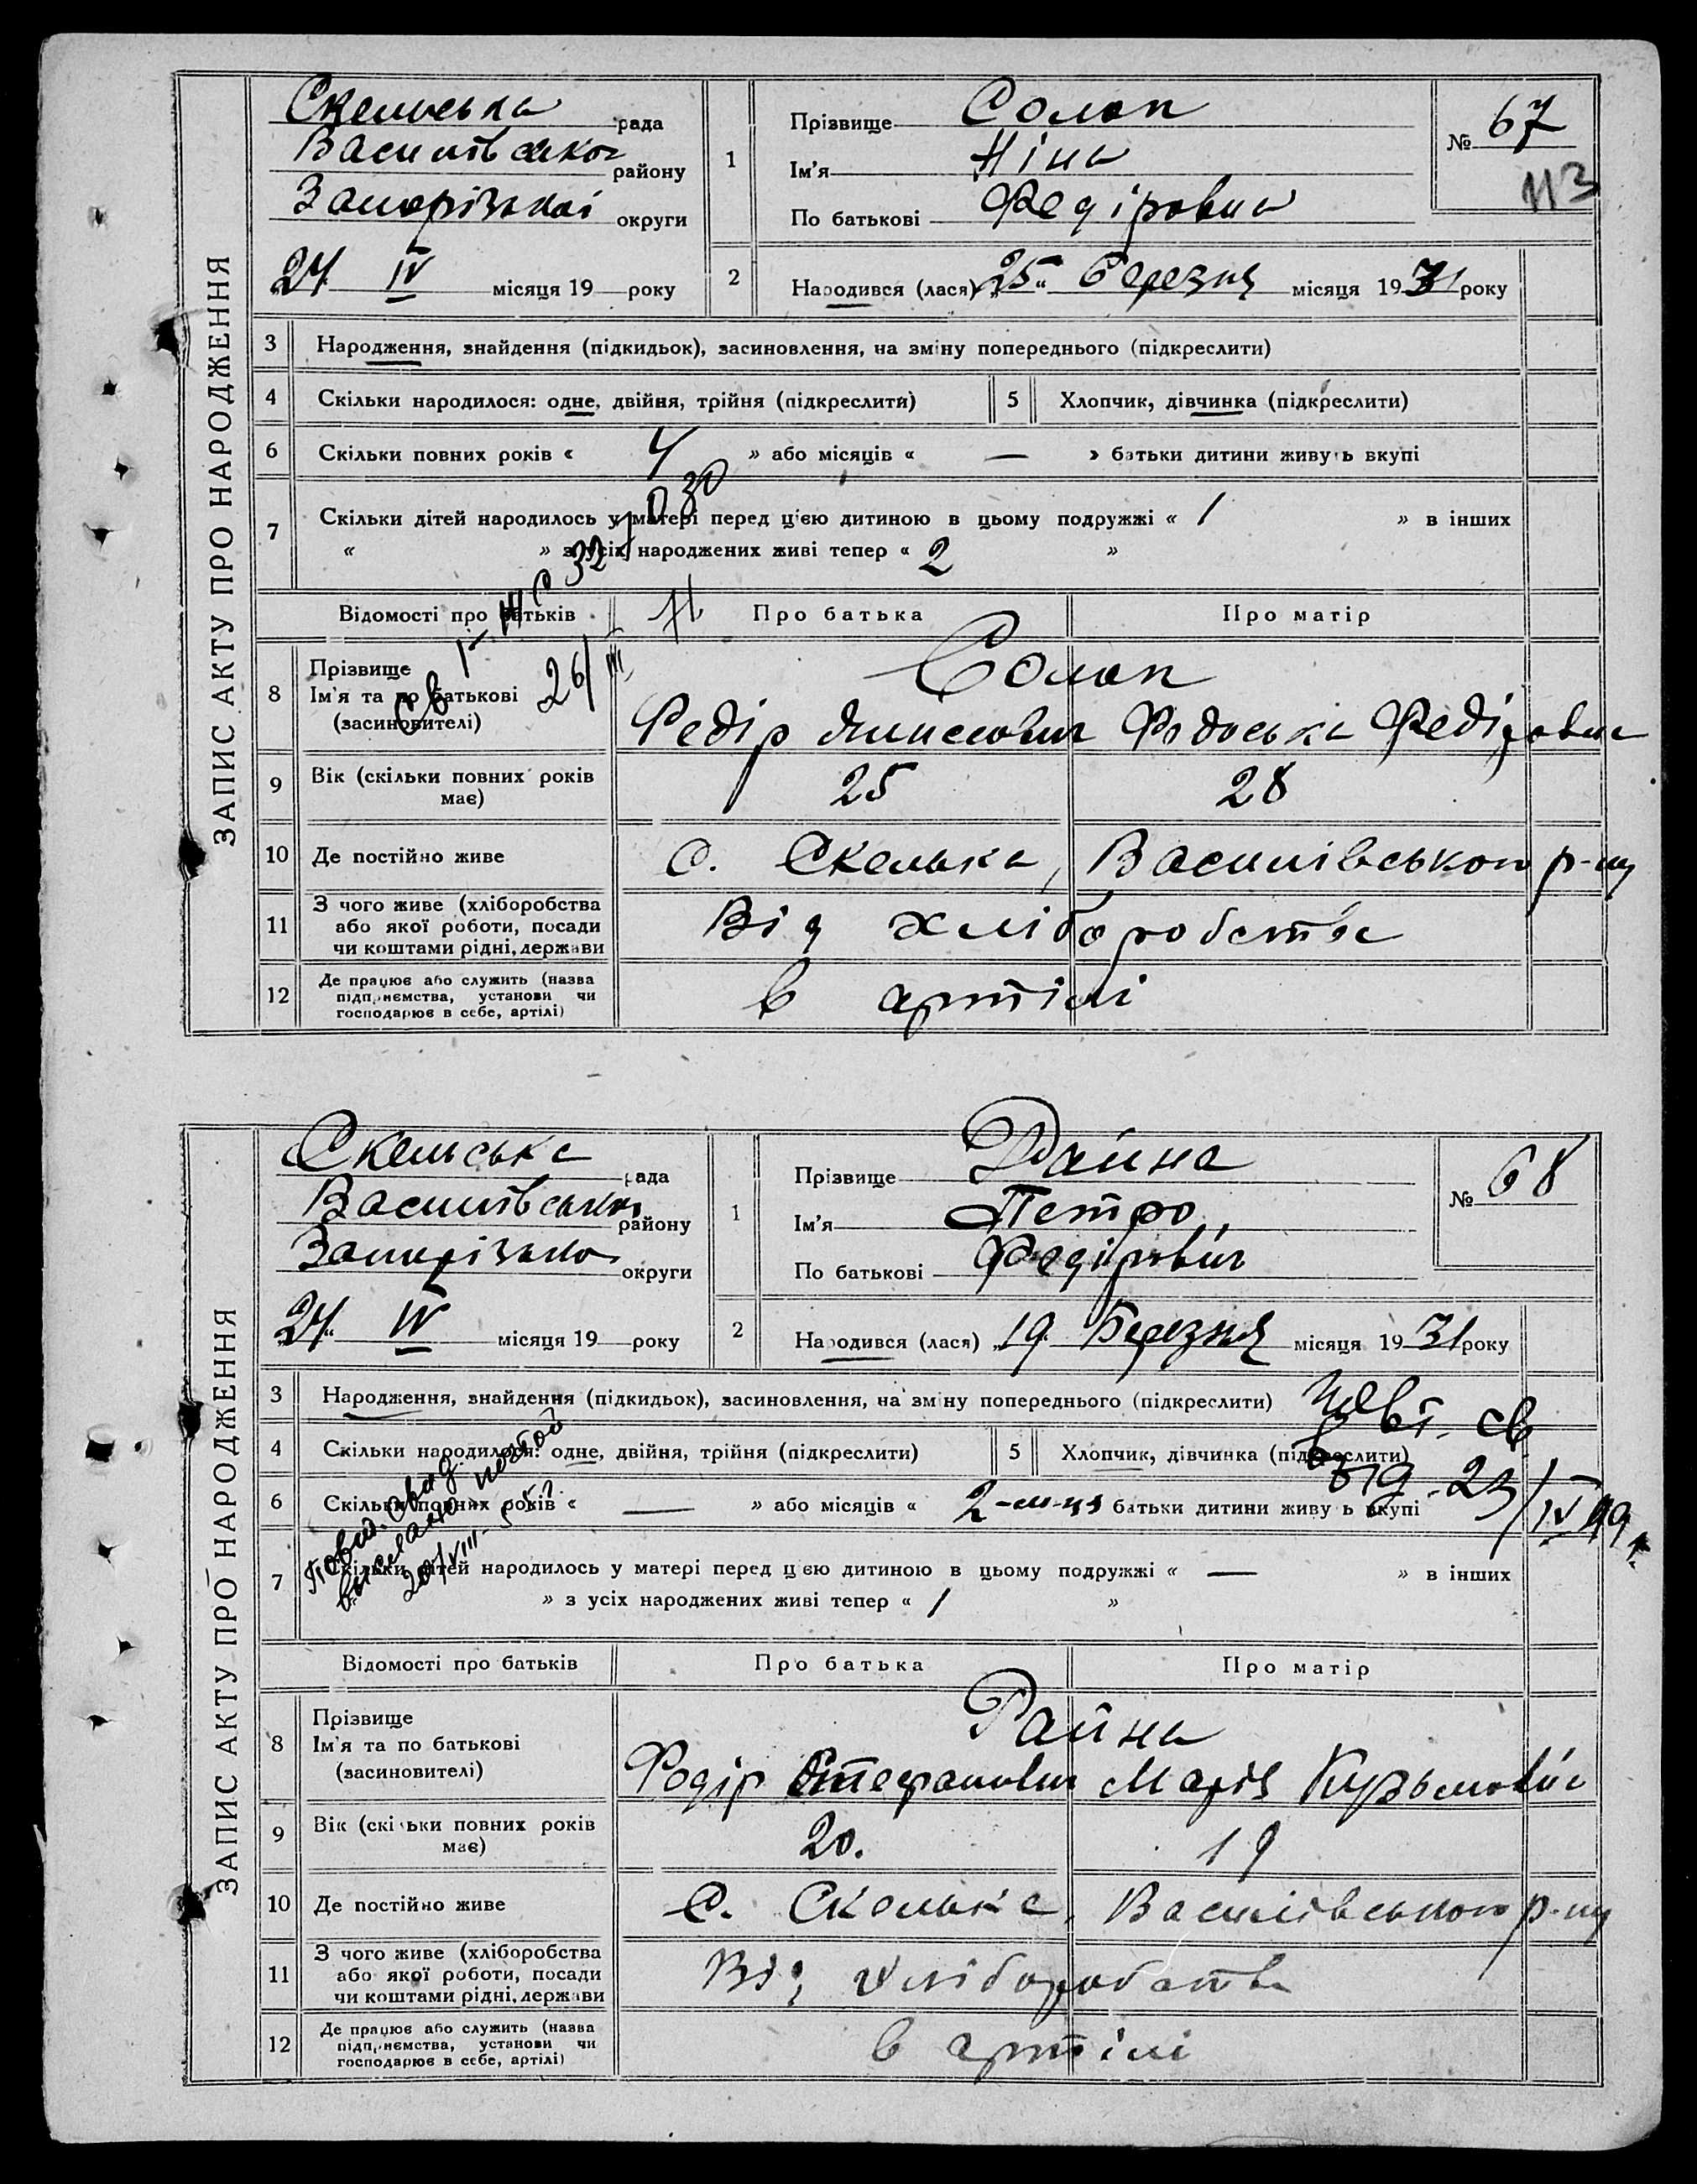 ЗАПИС АКТУ ПРО НАРОДЖЕННЯ
Скельська рада
Василівського району
Запорізької округи
24 IV місяця 19 року
1 Прізвище Солоп
Ім'я Ніна
По батькові Федіровна
№ 67
113
2 Народився (лася) „25“ березня місяця 1931 року
3 Народження, знайдення (підкидьок), засиновлення, на зміну попереднього (підкреслити)
4 Скільки народилося: одне, двійня, трійня (підкреслити)
5 Хлопчик, дівчинка (підкреслити)
6 Скільки повних років « 4 » або місяців « — » батьки дитини живуть вкупі
7 Скільки дітей народилось у матері перед цією дитиною в цьому подружжі « 1 » в інших
« » з усіх народжених живі тепер « 2 »
26/III
Відомості про батьків Про батька Про матір
8 Прізвище
Ім'я та по батькові
(засиновителі)
Солоп
Федір Федоська Федіровна
9 Вік (скільки повних років має) 25 28
10 Де постійно живе с. Скелька, Василівського р-ну
11 З чого живе (хліборобства або якої роботи, посади чи коштами рідні, держави
Від хліборобства
12 Де працює або служить (назва підприємства, установи чи господарює в себе, артілі)
в артілі
ЗАПИС АКТУ ПРО НАРОДЖЕННЯ
Скельська рада
Василівського району
Запорізької округи
24 IV місяця 19 року
1 Прізвище Райна
Ім'я Петро
По батькові Федірович
№ 68
2 Народився (лася) „19 Березня місяця 1931 року
3 Народження, знайдення (підкидьок), засиновлення, на зміну попереднього (підкреслити)
4 Скільки народилося: одне, двійня, трійня (підкреслити)
5 Хлопчик, дівчинка (підкреслити)
6 Скільки повних років « — » або місяців « 2-м-ця батьки дитини живуть вкупі
7 Скільки дітей народилось у матері перед цією дитиною в цьому подружжі « — » в інших
» з усіх народжених живі тепер « 1 »
Повт. св.
выд. 23/IV 49 г.
Повт. свид.
выслано почтой
20/VIII-
Відомості про батьків Про батька Про матір
8 Прізвище
Ім'я та по батькові
(засиновителі)
Райна
Федір Стефанович Марія Кузьмовна
9 Вік (скільки повних років має) 20. 19
10 Де постійно живе с. Скелька, Василівського р-ну
11 З чого живе (хліборобства або якої роботи, посади чи коштами рідні, держави
Від хліборобства
12 Де працює або служить (назва підприємства, установи чи господарює в себе, артілі)
в артілі